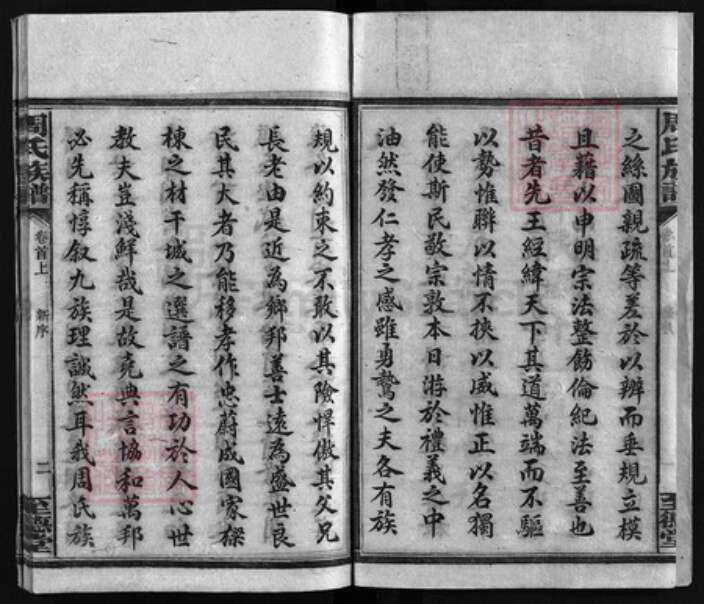 周氏族譜
至德堂
之絲國親疏等差於以辨而垂規立模
且藉以申明宗法整飭倫紀法至善也
昔者先王經緯天下其道萬端而不驅
以勢惟聯以情不挾以威惟正以名獨
能使斯民敬宗敦本日游於禮義之中
油然發仁孝之感雖勇鷙之夫各有族
規以約束之不敢以其險悍傲其父兄
長老由是近為鄉邦善士遠為盛世良
民其大者乃能移孝作忠蔚成國家樑
棟之材干城之選譜之有功於人心世
教夫豈淺鮮哉是故堯典言協和萬邦
必先稱惇叙九族理誠然耳我周氏族
周氏族譜
卷首上
新序
二
至德堂